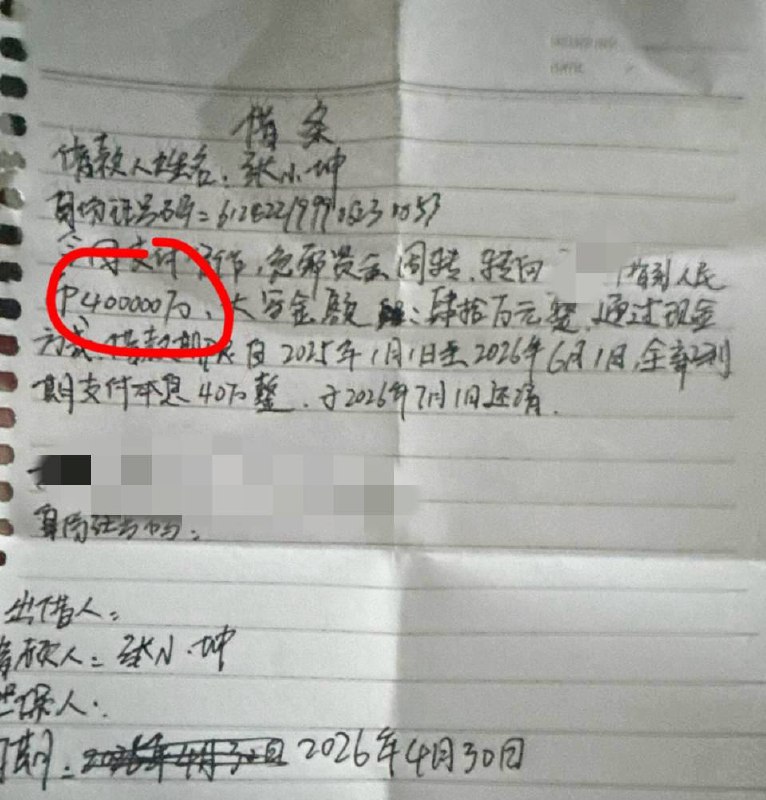 借条
借款人姓名：张小坤
身份证号码=
支付 ，急需资金周转，现向 借到人民
P400000万、大写金额 ：肆拾万元整，通过现金
方式，借款期限自2025年1月1日至2026年6月1日，全部到
期支付本息40万整．于2026年7月1日还清．
身份证号码：
出借人：
借款人：张小坤
担保人：
日期：2026年4月30日 2026年4月30日